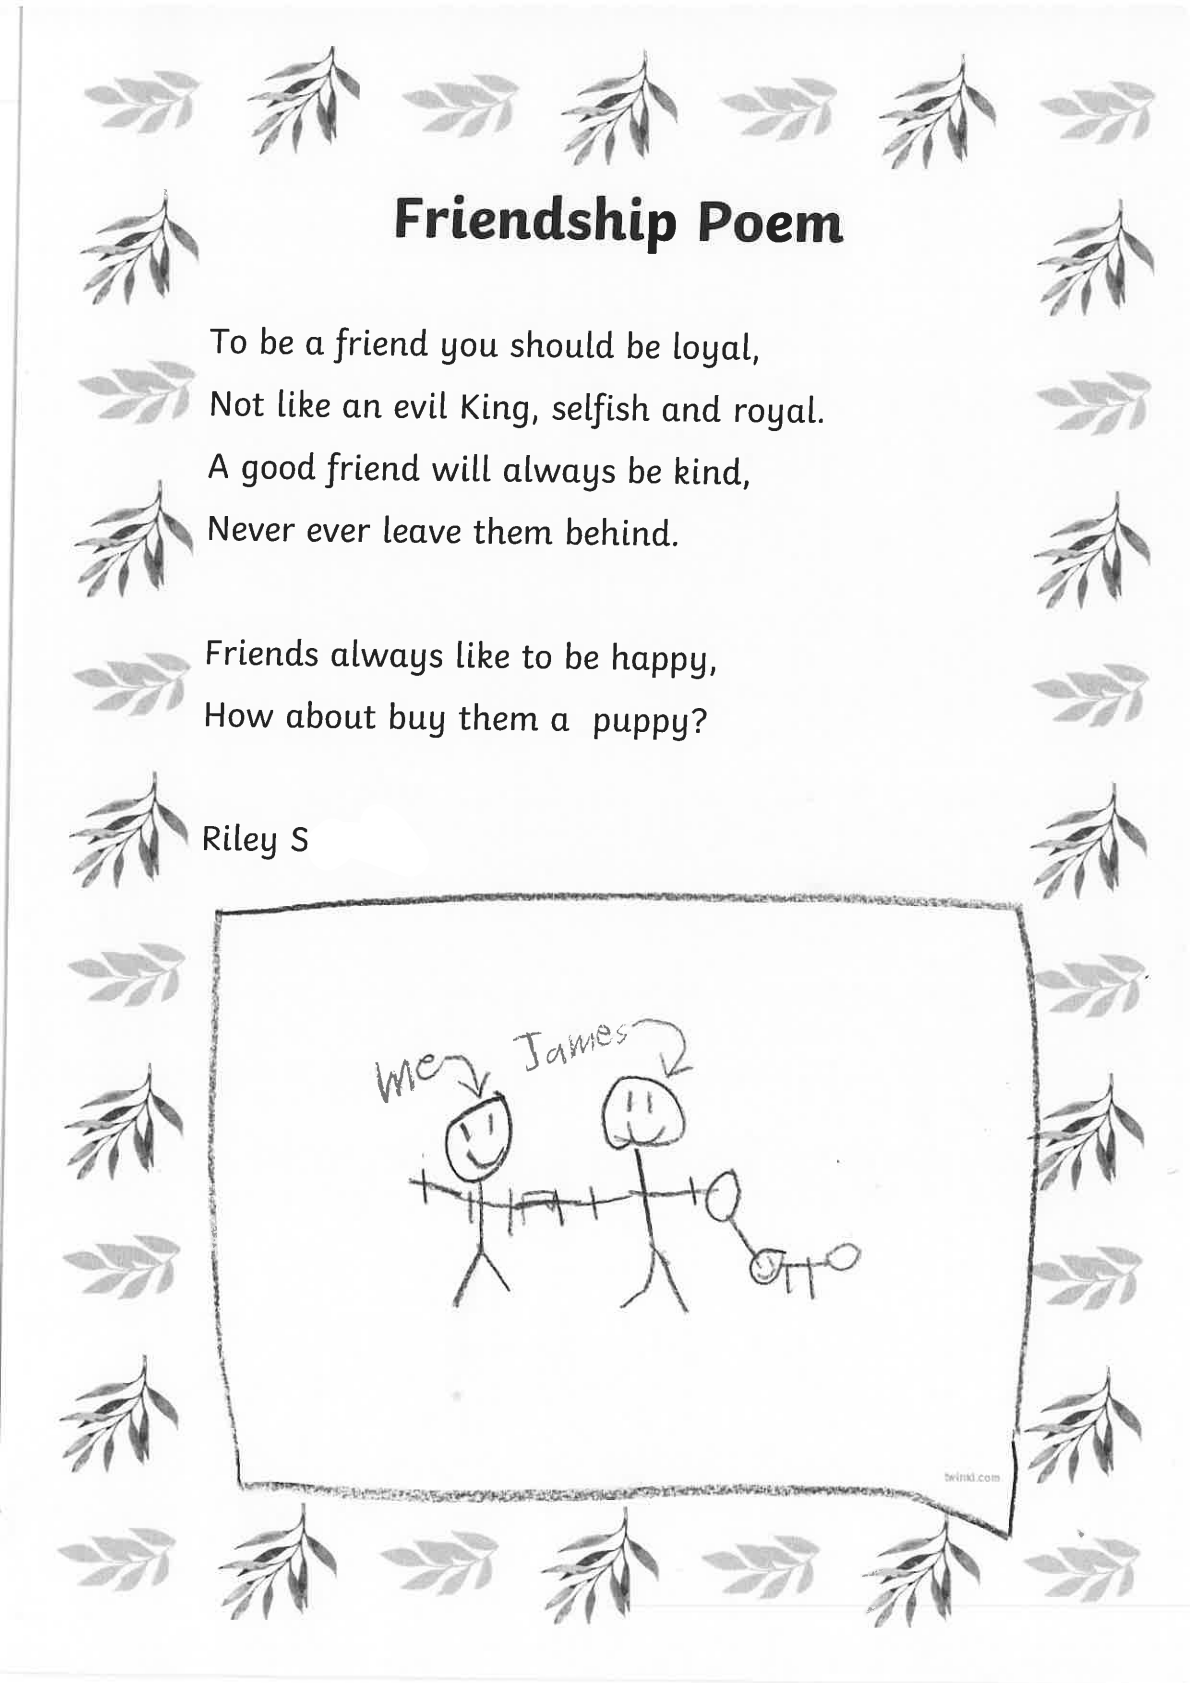 Friendship Poem
To be a friend you should be loyal,
Not like an evil King, selfish and royal.
A good friend will always be kind,
Never ever leave them behind.
Friends always like to be happy,
How about buy them a  puppy?
Riley S
Me
James
twinkl.com